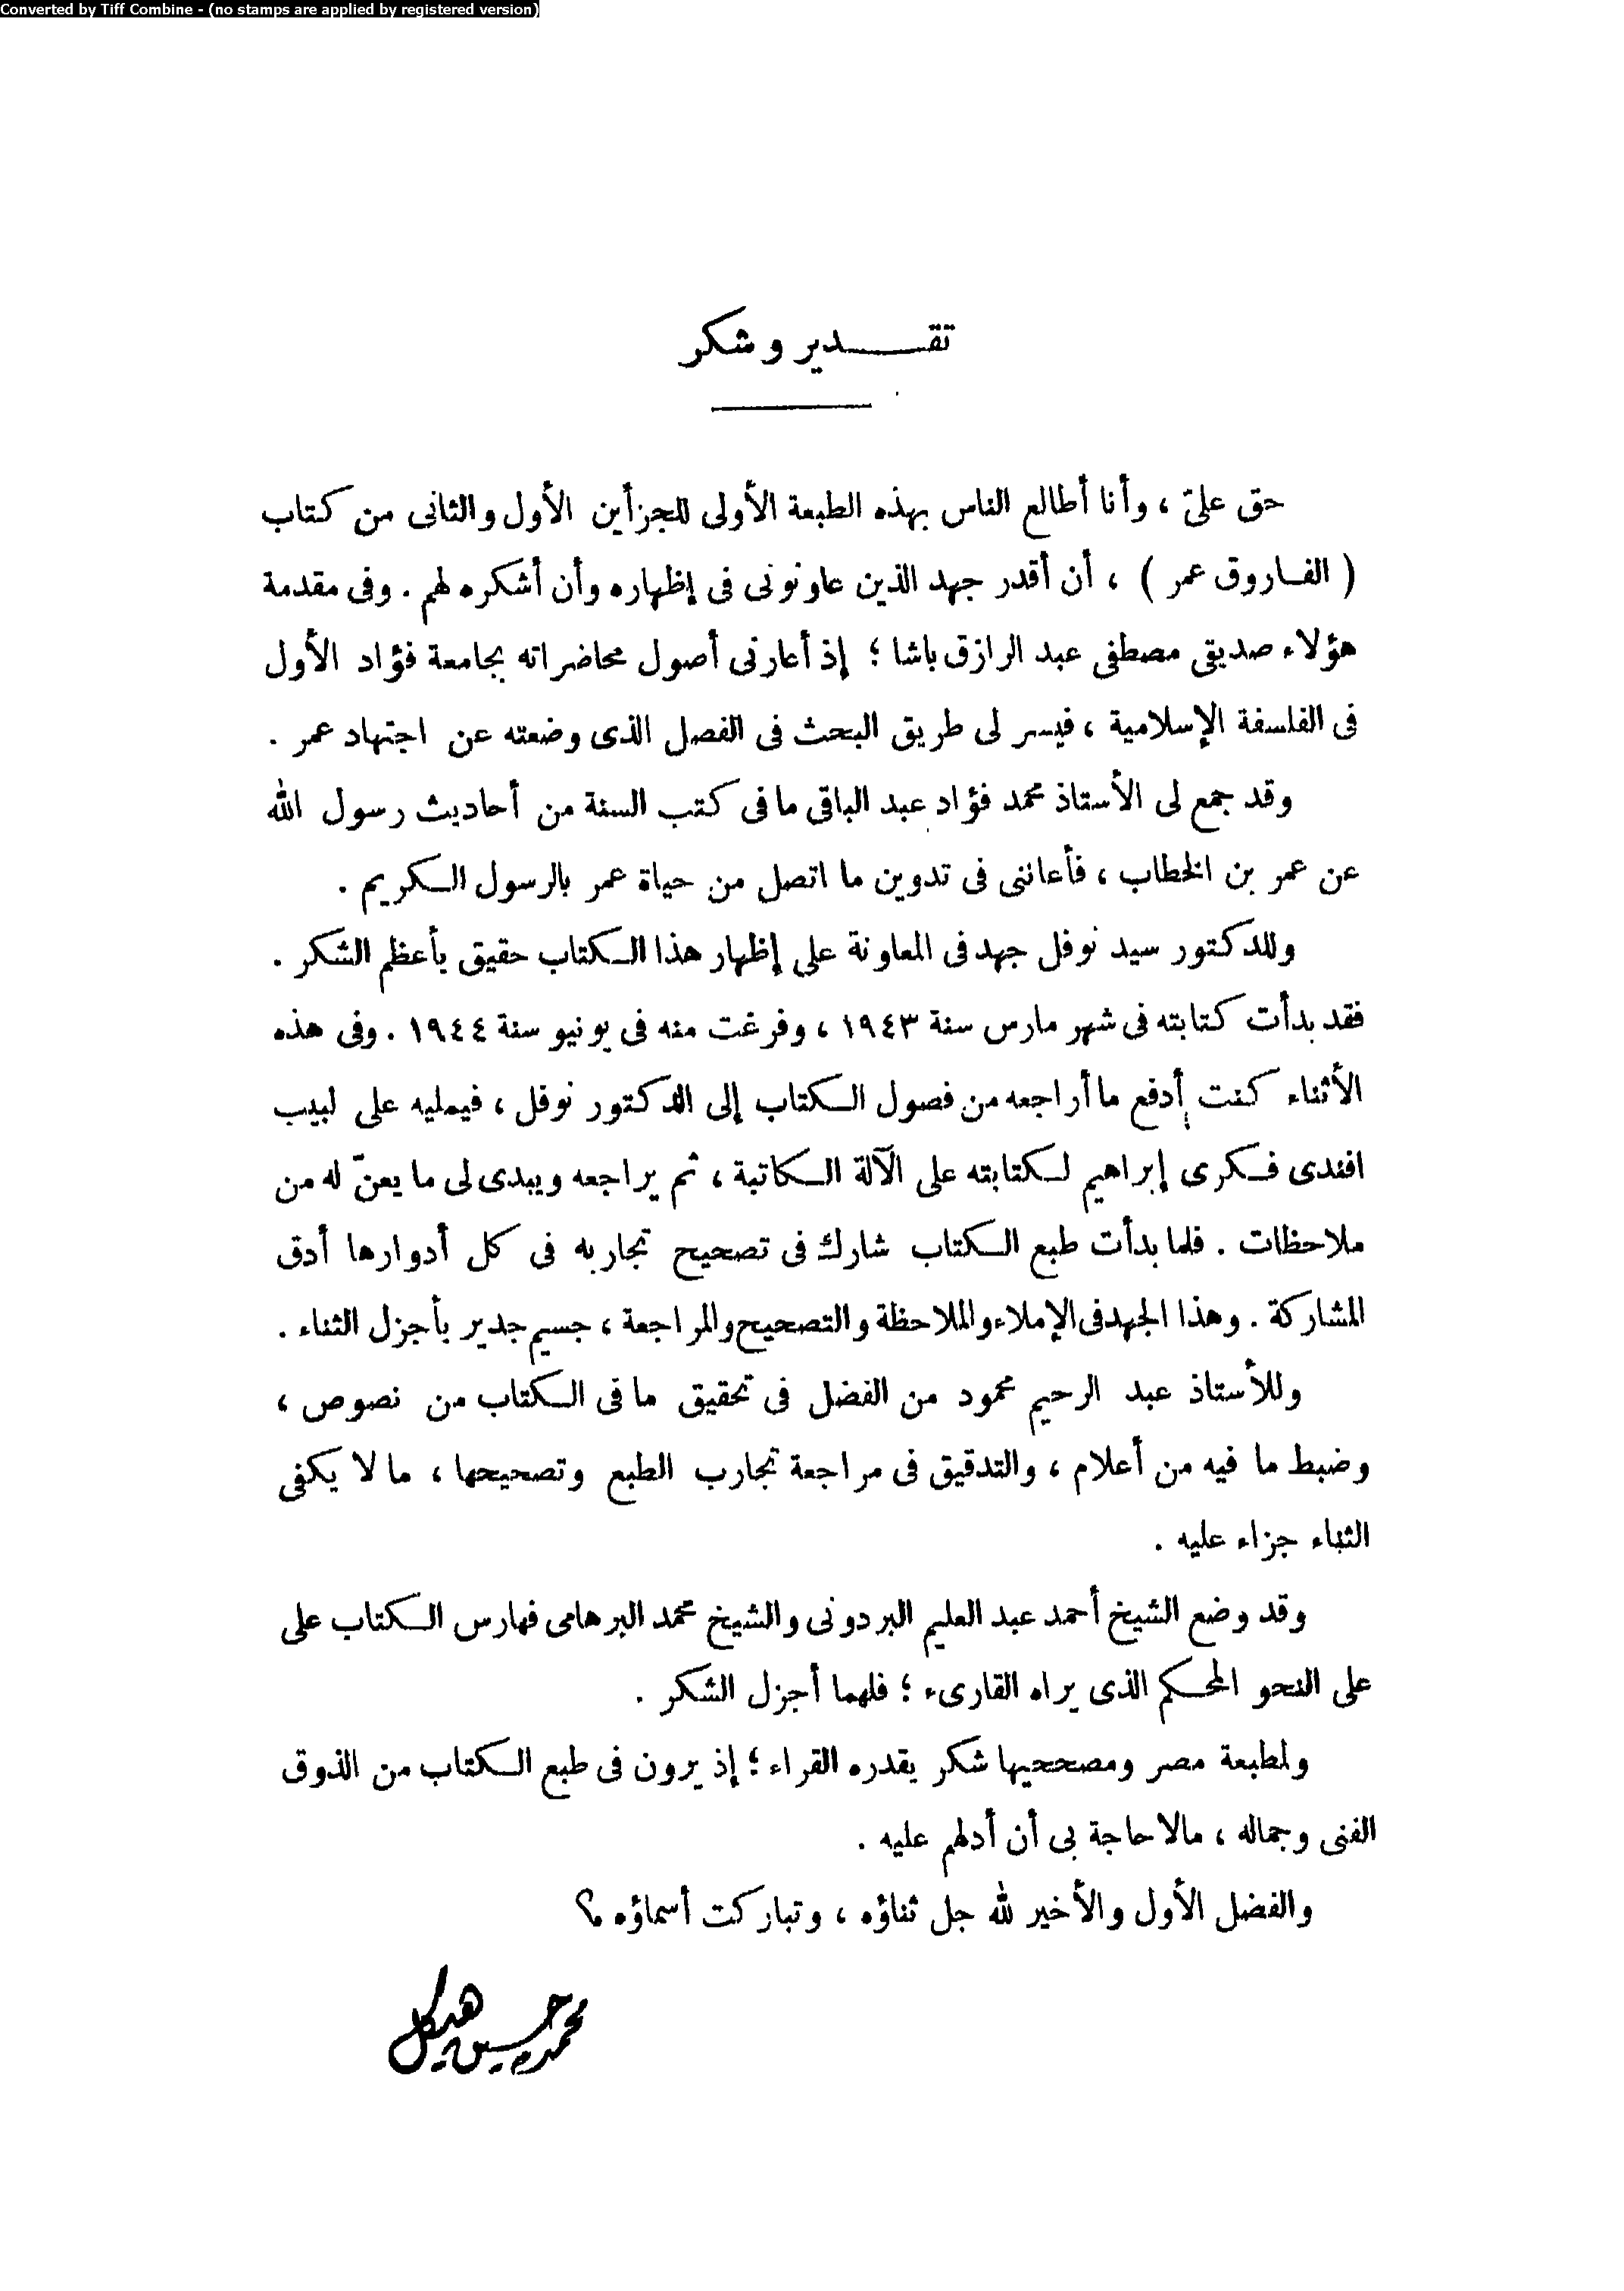 Converted by Tiff Combine - (no stamps are applied by registered version)
تقـــدير وشكر
حق علىّ ، وأنا أطالع الناس بهذه الطبعة الأولى للجزأين الأول والثانى من كتاب
( الفاروق عمر ) ، أن أقدر جهد الذين عاونونى فى إظهاره وأن أشكره لهم . وفى مقدمة
هؤلاء صديقى مصطفى عبد الرازق باشا ؛ إذ أعارنى أصول محاضراته بجامعة فؤاد الأول
فى الفلسفة الإسلامية ، فيسر لى طريق البحث فى الفصل الذى وضعته عن اجتهاد عمر .
وقد جمع لى الأستاذ محمد فؤاد عبد الباقى ما فى كتب السنة من أحاديث رسول الله
عن عمر بن الخطاب ، فأعاننى فى تدوين ما اتصل من حياة عمر بالرسول الكريم .
وللدكتور سيد نوفل جهد فى المعاونة على إظهار هذا الكتاب حقيق بأعظم الشكر .
فقد بدأت كتابته فى شهر مارس سنة ١٩٤٣ ، وفرغت منه فى يونيو سنة ١٩٤٤ . وفى هذه
الأثناء كنت أدفع ما أراجعه من فصول الكتاب إلى الدكتور نوفل ، فيمليه على لبيب
افندى فكرى إبراهيم لكتابته على الآلة الكاتبة ، ثم يراجعه ويبدى لى ما يعنّ له من
ملاحظات . فلما بدأت طبع الكتاب شارك فى تصحيح تجاربه فى كل أدوارها أدق
المشاركة . وهذا الجهد فى الإملاء والملاحظة والتصحيح والمراجعة ، جسيم جدير بأجزل الثناء .
وللأستاذ عبد الرحيم محمود من الفضل فى تحقيق ما فى الكتاب من نصوص ،
وضبط ما فيه من أعلام ، والتدقيق فى مراجعة تجارب الطبع وتصحيحها ، ما لا يكفى
الثناء جزاء عليه .
وقد وضع الشيخ أحمد عبد العليم البردونى والشيخ محمد البرهامى فهارس الكتاب على
على النحو المحكم الذى يراه القارىء ؛ فلهما أجزل الشكر .
ولمطبعة مصر ومصححيها شكر يقدره القراء ؛ إذ يرون فى طبع الكتاب من الذوق
الفنى وجماله ، مالا حاجة بى أن أدلهم عليه .
والفضل الأول والأخير لله جل ثناؤه ، وتباركت أسماؤه ؟
محمد حسين هيكل